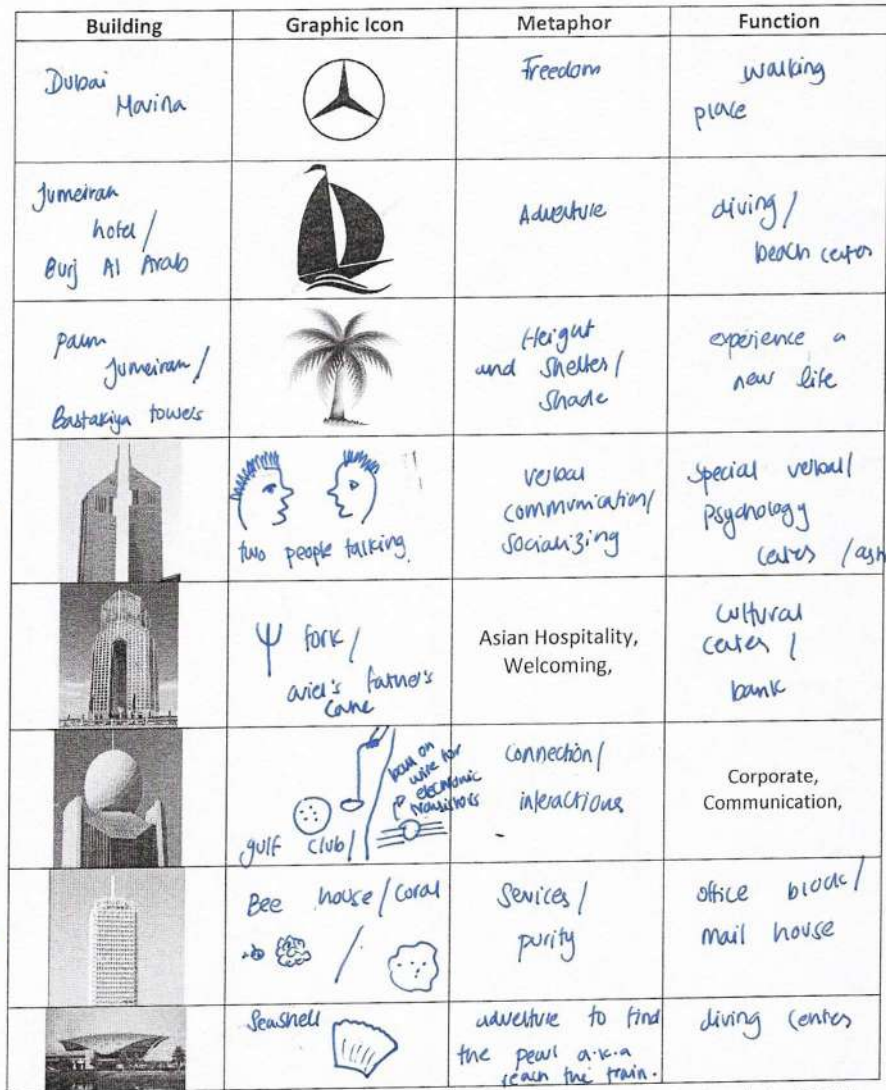 Building Graphic Icon Metaphor Function
Dubai
Marina
Freedom
walking
place
Jumeirah
hotel /
Burj Al Arab
Adventure
diving /
beach center
Palm
Jumeirah /
Bastakiya towers
Height
and Shelter /
Shade
experience a
new life
two people talking
verbal
communication/
socializing
special verbal/
psychology
center /
fork /
ariel's father's
cane
Asian Hospitality,
Welcoming,
cultural
center /
bank
gulf club/
ball on
wire for
electronic
transistors
connection/
interactions
Corporate,
Communication,
Bee house / coral
/
Services /
purity
office block /
mail house
Seashell
adventure to find
the pearl a.k.a
reach the train.
diving center